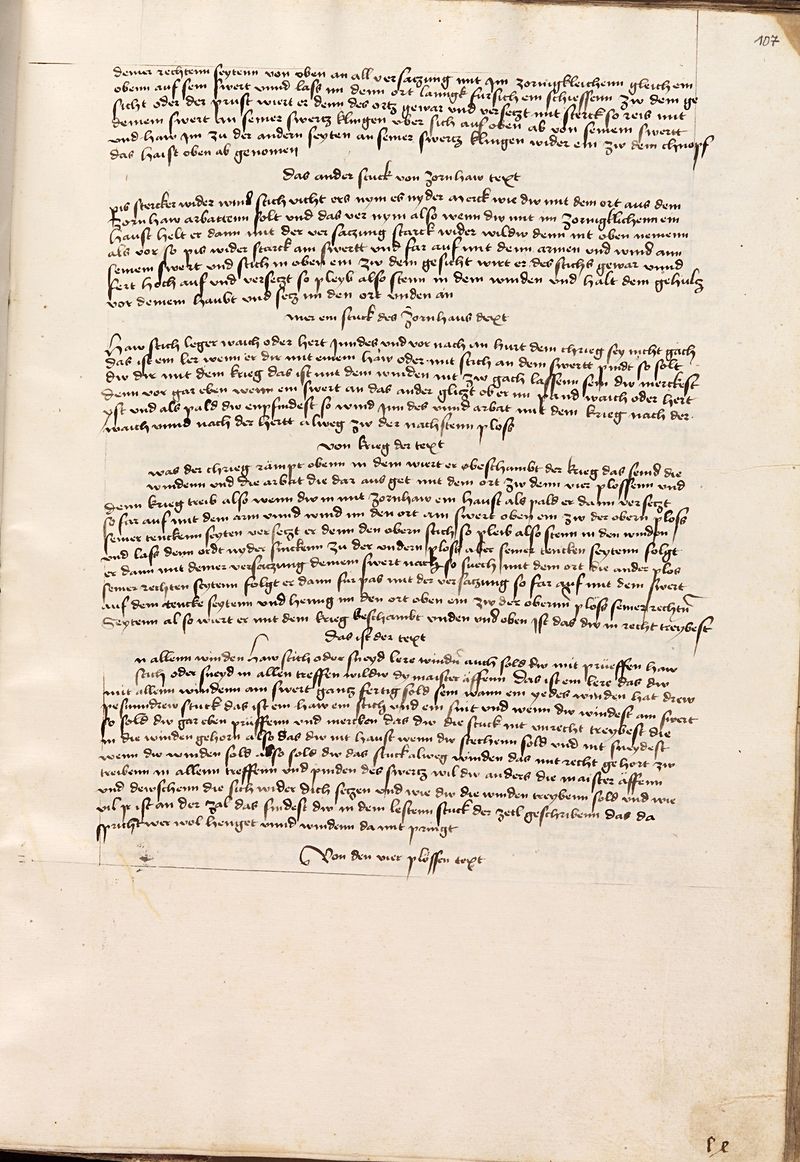 107
deiner rechtenn seytenn von oben an all versatzung mit Im zornigkleichenn gleich ein
obenn auf sein swert unnd lass im denn ort lanngk fursich ein schiessenn zw dem ge
sicht oder der prust wiert er denn des ortz gewar und versetzt mit sterck so reis mit
deinem swert an seiner swertz klingen uber sich auf oben ab von seinem swertt
und haw Im zu der andern seyten an seiner swertz klingen wider ein zw dem chnopf
das haist oben ab genomen
das ander stuck von zornhaw text
pis stercker wider wind stich sicht ers nym es nyder merck wie dw mit dem ort aus dem
zornhaw arbattenn solt und das ver nym also wenn dw mit im zorniglichenn ein
haust helt er dann mit der versatzung starck wider wildw denn nit oben nemenn
als vor so pis wider starck am swertt und far auf mit denn armen und wind am
seinem swert und stich in oben ein zw dem gesicht wirt er des stichs gewar unnd
fert hoch auf und versetzt so pleyb also stenn in dem winden und halt dein gehultz
vor deinem haubt und setz im den ort unden an
mer ein stuck des zornhaus text
Haw stich leger waich oder hert Inndes und vor nach an hurt dem chrieg sey nicht gach
das ist ein ler wenn er dir mit einem haw oder mit stich an dem swertt pindt so solt
dw dir mit dem krieg das ist mit dem winden nit zw gach lassenn sein dw merckest
denn vor gar eben wenn ein swert an das ander glitzt ob er im pand waich oder hert
yst und als pald dw enpfindest so wind Inn des unnd arbat mit dem krieg nach der
waich unnd nach der hertt alweg zw der nachstenn ploss
von krieg der text
was der chrieg rämpt obenn in dem wiert er obeschambt der krieg das seind die
windenn und die arbat die dar aus get mit dem ort zw denn vier plossenn und
denn krieg treib also wenn dw in mit zornhaw ein haust als pald er dann versetzt
so far auf mit dem arm unnd wind im den ort am swert oben ein zw der obern ploss
seiner tencken seyten versetzt er denn den obern stich so pleib also stenn in den winden
und lass denn ordt nyder sincken zu der undern ploss aber seiner tencken seytenn folgt
er dann mit deiner versatzung deinem swert nach so suech mit dem ort die ander plos
seiner rechten seytenn folgt er dann fur pas mit der versatzung so far auf mit dem swert
auf dein tencke seytenn und heng im den ort oben ein zw der oberinn ploss seiner rechtn
Seytenn also wiert er mit dem krieg beschambt unden und oben Ist das dw in recht treybest
Das ist der text
n allenn winden haw stich oder sneyd lere windn auch sold dw mit prüeffen haw
stich oder sneyd in allen treffen wildw dy maister äffenn Das ist ein lere das dw
mit allenn windenn am swert gantz fertig sold sein wann ein yedes winden hat drew
pesunndrew stuck das ist ein haw ein stich und ein snit und wenn dw windest am swert
so sold dw gar eben prüffenn und mercken das dw die stuck nit unrecht treybest die
in die winden gehorn also das dw nit haust wenn dw stechenn sold und nit sneydest
wenn dw winden sold also sold dw das stuck alweg winden das mit recht gehort zw
treibenn in allenn treffenn und pinden des swertz wil dw anders die maister äffenn
und dewschenn die sich wider dich setzen und wie dw die winden treybenn sold und wie
vil ir ist an der zal das findest dw in dem lestenn stuck der zetl geschribenn das da
spricht wer wol henget unnd windenn da mit pringt
Von den vier plössen text